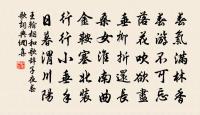 春氣滿林香
春游不可忘
落花吹欲盡
垂柳折還長
桑女淮南曲
金鞍塞北裝
行行小垂手
日暮渭川陽
王翰相和歌辭子夜春
歌詞典網喜